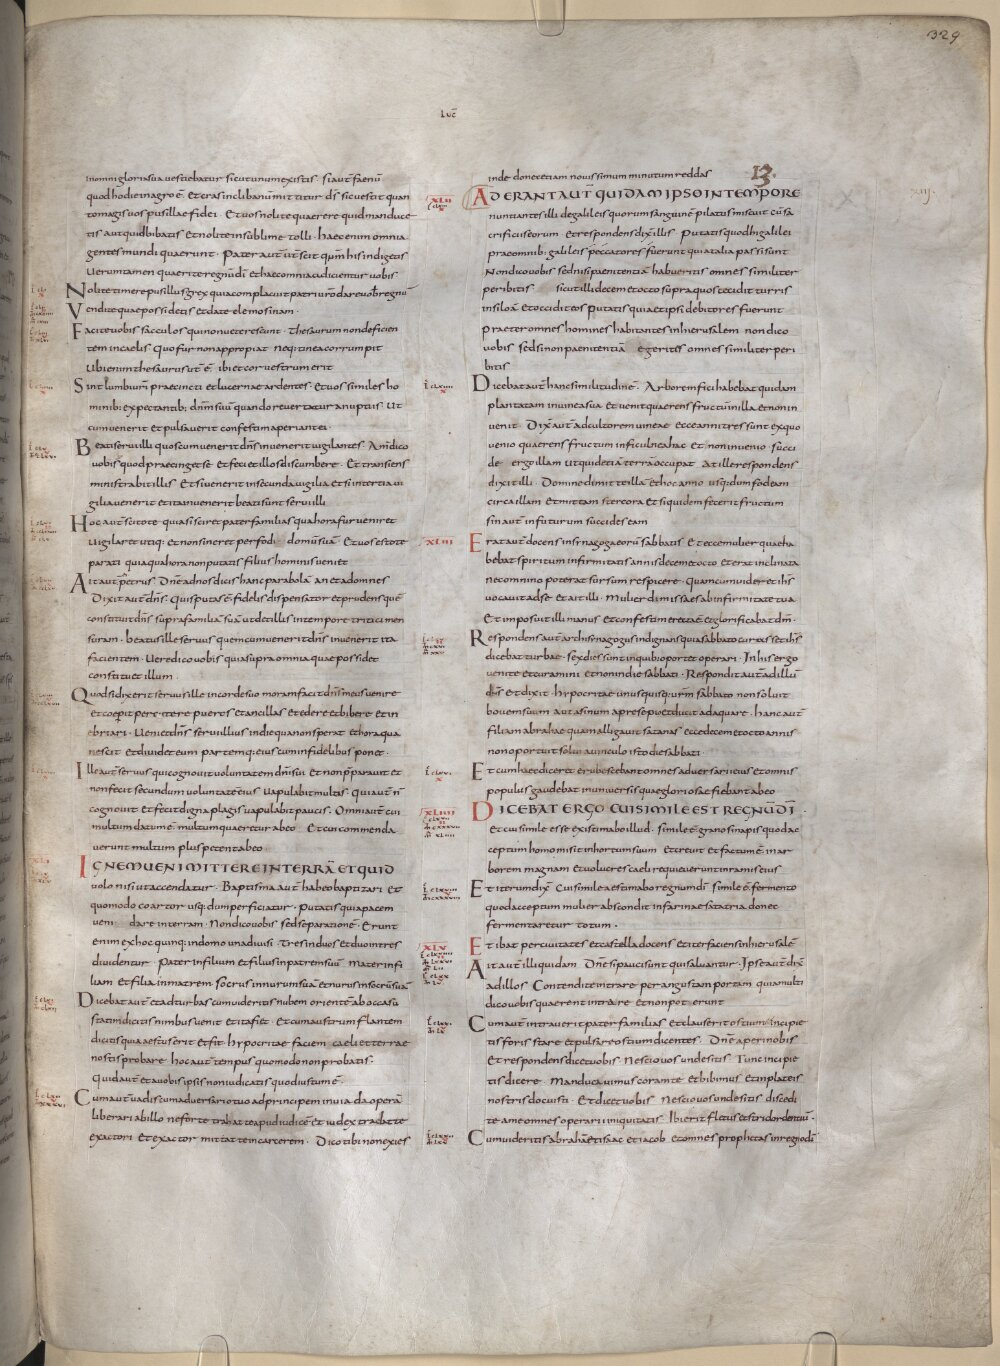 329
LUC
in omni gloria sua vestiebatur sicut unum ex istis · si aut̄ faenū
quod hodie in agro ē · et cras in clibanum mittitur d̄s sic vestit quan
to magis vos pusillae fidei · Et vos nolite quaerere quid manduce
tis aut quid bibatis Et nolite in sublime tolli · haec enim omnia
gentes mundi quaerunt · Pater aut̄ ūr scit qm̄ his indigetis
Verumtamen quaerite regnū dī et haec omnia adicientur vobis
Nolite timere pusillus grex quia complacuit patri vr̄o dare vob regnū
Vendite quae possidetis et date elemosinam ·
Facite vobis sacculos qui non veterescunt · Thesaurum non deficien
tem in caelis Quo fur non appropiat neq· tinea corrumpit
Ubi enim thesaurus ur̄ ē ibi et cor vestrum erit
Sint lumbi ur̄i praecincti et lucernae ardentes · Et vos similes ho
minib; expectantib; dn̄m suū quando revertatur a nuptiis · Ut
cum venerit et pulsaverit confestim aperiant ei ·
Beati servi illi quos cum venerit dn̄s invenerit vigilantes Am̄ dico
vobis quod praecinget se · Et faciet illos discumbere · Et transiens
ministrabit illis Et si venerit in secunda vigilia et si in tertia vi
gilia venerit et ita invenerit beati sunt servi illi
Hoc aut̄ scitote quia si sciret pater familias qua hora fur veniret
vigilaret utiq; et non sineret perfodi domū suā · Et vos estote
parati quia qua hora non putatis filius hominis veniet
Ait aut̄ petrus Dn̄e ad nos dicis hanc parabolā an et ad omnes
Dixit aut̄ dn̄s · Quis putas ē fidelis dispensator et prudens quē
constituit dn̄s supra familiā suā ut det illis in tempore tritici men
suram · beatus ille servus quem cum venerit dn̄s invenerit ita
facientem · Vere dico vobis quia supra omnia quae possidet
constituet illum ·
Quod si dixerit servus ille in corde suo moram facit dn̄s meus venire
et coeperit percutere pueros et ancillas et edere et bibere et in
ebriari · Veniet dn̄s servi illius in die qua non sperat et hora qua
nescit Et dividet eum partemq; eius cum infidelibus ponet ·
Ille aut̄ servus qui cognovit voluntatem dn̄i sui Et non p̄paravit et
non fecit secundum voluntatē eius Vapulabit multas · Qui aut̄ n̄
cognovit et fecit digna plagis vapulabit paucis · Omni aut̄ cui
multum datum ē multum quaeretur ab eo Et cui commenda
verunt multum plus petent ab eo
IGNEM VENI MITTERE IN TERRĀ ET QUID
volo nisi ut accendatur · Baptisma aut̄ habeo baptizari Et
quomodo coartor usq; dum perficiatur · Putatis quia pacem
veni dare in terram · Non dico vobis sed separationē · Erunt
enim ex hoc quinq; in domo una divisi Tres in duos et duo in tres
dividentur · Pater in filium et filius in patrem suū Mater in fi
liam et filia in matrem socrus in nurum suā et nurus in socrū suā
Dicebat aut̄ et ad turbas cum videritis nubem orientē ab occasu
statim dicitis nimbus venit et ita fiet · Et cum austrum flantem
dicitis quia aestus erit Et fit hypocritae faciem caeli et terrae
nostis probare hoc aut̄ tempus quomodo non probatis ·
Quid aut̄ et a vobis ipsis non iudicatis quod iustum ē ·
Cum aut̄ vadis cum adversario tuo ad principem in via da operā
liberari ab illo ne forte trahat te apud iudicē et iudex tradat te
exactori Et exactor mittat te in carcerem · Dico tibi non exies
inde donec etiam novissimum minutum reddas
13
XIII·
XLII
ADERANT AUT̄ QUIDAM IPSO IN TEMPORE
nuntiantes illi de galileis quorum sanguinē pilatus miscuit cū sa
crificiis eorum Et respondens dixit illis Putatis quod hi galilei
prae omnib; galileis peccatores fuerunt quia talia passi sunt
Non dico vobis sed nisi paenitentiā habueritis omnes similiter
peribitis sicut illi decem et octo supra quos cecidit turris
in siloā Et occidit eos Putatis quia et ipsi debitores fuerunt
praeter omnes homines habitantes in hierusalem non dico
vobis sed si non paenitentiā egeritis omnes similiter peri
bitis
Dicebat aut̄ hanc similitudinē · Arborem fici habebat quidam
plantatam in vinea sua Et venit quaerens fructū in illa et non in
venit Dix̄ aut̄ ad cultorem vineae Ecce anni tres sunt ex quo
venio quaerens fructum in ficulnea hac Et non invenio succi
de ergo illam ut quid etiā terrā occupat At ille respondens
dixit illi · Domine dimitte illā et hoc anno usq; dum fodeam
circa illam Et mittam stercora Et si quidem fecerit fructum
sin aut̄ in futurum succides eam
XLIII
Erat aut̄ docens in synagoga eorū sabbatis Et ecce mulier quae ha
bebat spiritum infirmitatis annis decem et octo Et erat inclinata
nec omnino poterat sursum respicere · Quam cum videret ih̄s
vocavit ad se Et ait illi · Mulier dimissa es ab infirmitate tua
Et imposuit illi manus Et confestim erecta ē et glorificabat dm̄ ·
Respondens aut̄ archisynagogus indignans quia sabbato curasset ih̄s
dicebat turbae · sex dies sunt in quib; oportet operari · In his ergo
venite et curamini et non in die sabbati · Respondit aut̄ ad illū
dn̄s Et dixit · hypocritae unusquisq; ur̄m sabbato non solvit
bovem suum aut asinum a praesepio et ducit adaquare · hanc aut̄
filiam abrahae quam alligavit satanas ecce decem et octo annis
non oportuit solvi a vinculo isto die sabbati ·
Et cum haec diceret erubescebant omnes adversarii eius et omnis
populus gaudebat in universis quae gloriosae fiebant ab eo
XLIIII
DICEBAT ERGO CUI SIMILE EST REGNŪ DĪ ·
Et cui simile esse existimabo illud · simile ē grano sinapis quod ac
ceptum homo misit in hortum suum Et crevit et factum ē in ar
borem magnam Et volucres caeli requieverunt in ramis eius
Et iterum dix̄ Cui simile aestimabo regnum dī · simile ē fermento
quod acceptum mulier abscondit in farinae sata tria donec
fermentaretur totum ·
XLV
Et ibat per civitates et castella docens et iter faciens in hierusalē
Ait aut̄ illi quidam Dn̄e si pauci sunt qui salvantur · Ipse aut̄ dix̄
ad illos Contendite intrare per angustam portam quia multi
dico vobis quaerent intrare Et non poterunt
Cum aut̄ intraverit pater familias Et clauserit ostium incipie
tis foris stare et pulsare ostium dicentes · Dn̄e aperi nobis
Et respondens dicet vobis Nescio vos unde sitis Tunc incipie
tis dicere · Manducavimus coram te Et bibimus Et in plateis
nostris docuisti · Et dicet vobis Nescio vos unde sitis discedi
te a me omnes operarii iniquitatis · Ibi erit fletus et stridor dentiū ·
Cum videritis abrahā et isaac et iacob et omnes prophetas in regno dī